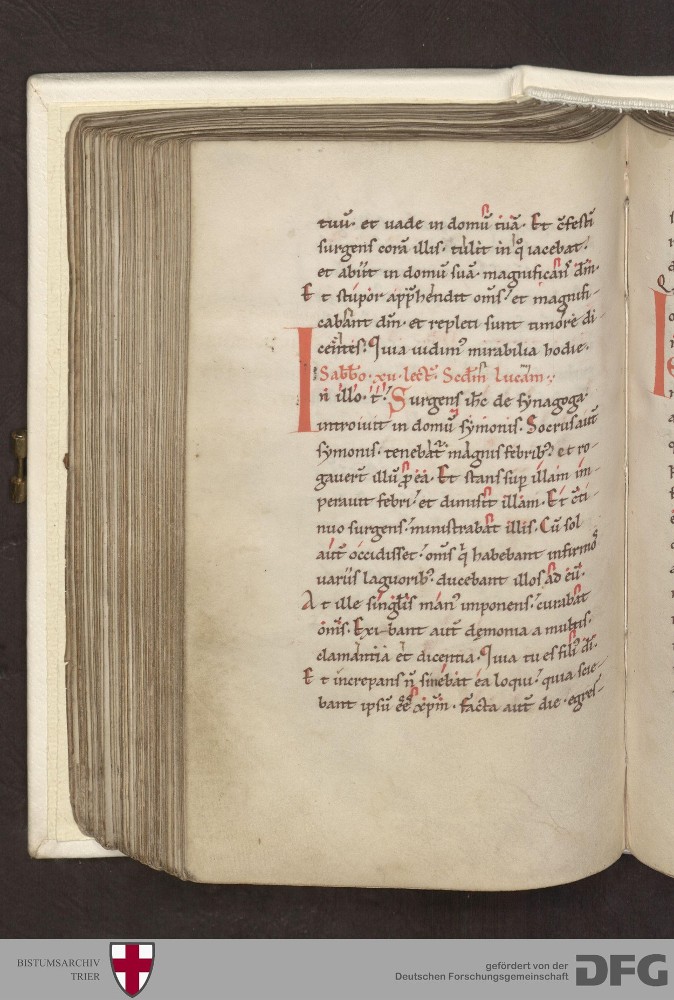 tuū· et uade in domū tuā· Et cfestī
surgens corā illis· tulit in q̊ iacebat·
et abiit in domū suā· magnificans dm̄·
Et stupor app̄hendit oms̄· et magnifi-
cabant dm̄· et repleti sunt timore di
centes· Quia uidim⁹ mirabilia hodie·
Sabb̄o· xu· lect̄· Scdm̄ Lucam·
In illo· t̄· Surgens ih̄c de synagoga·
introiuit in domū symonis· Socrus aut̄
symonis· tenebat᷑ magnis febrib⁹· et ro-
gauer̄t illū ꝓ ea· Et stans sup̄ illam im-
perauit febri· et dimisit illam· Et cti-
nuo surgens· ministrabat illis· Cū sol
aut̄ occidisset· oms̄ q̇ habebant infirmos
uariis laguorib⁹· ducebant illos ad eū·
At ille singlis man⁹ imponens· curabat
oms̄· Exibant aut̄ dęmonia a multis·
clamantia et dicentia· Quia tu es fili⁹ dī·
Et increpans n̄ sinebat ea loqui· quia scie-
bant ipsū eē xp̄m· Facta aut̄ die· egres-
BISTUMSARCHIV
TRIER
gefördert von der
Deutschen Forschungsgemeinschaft
DFG